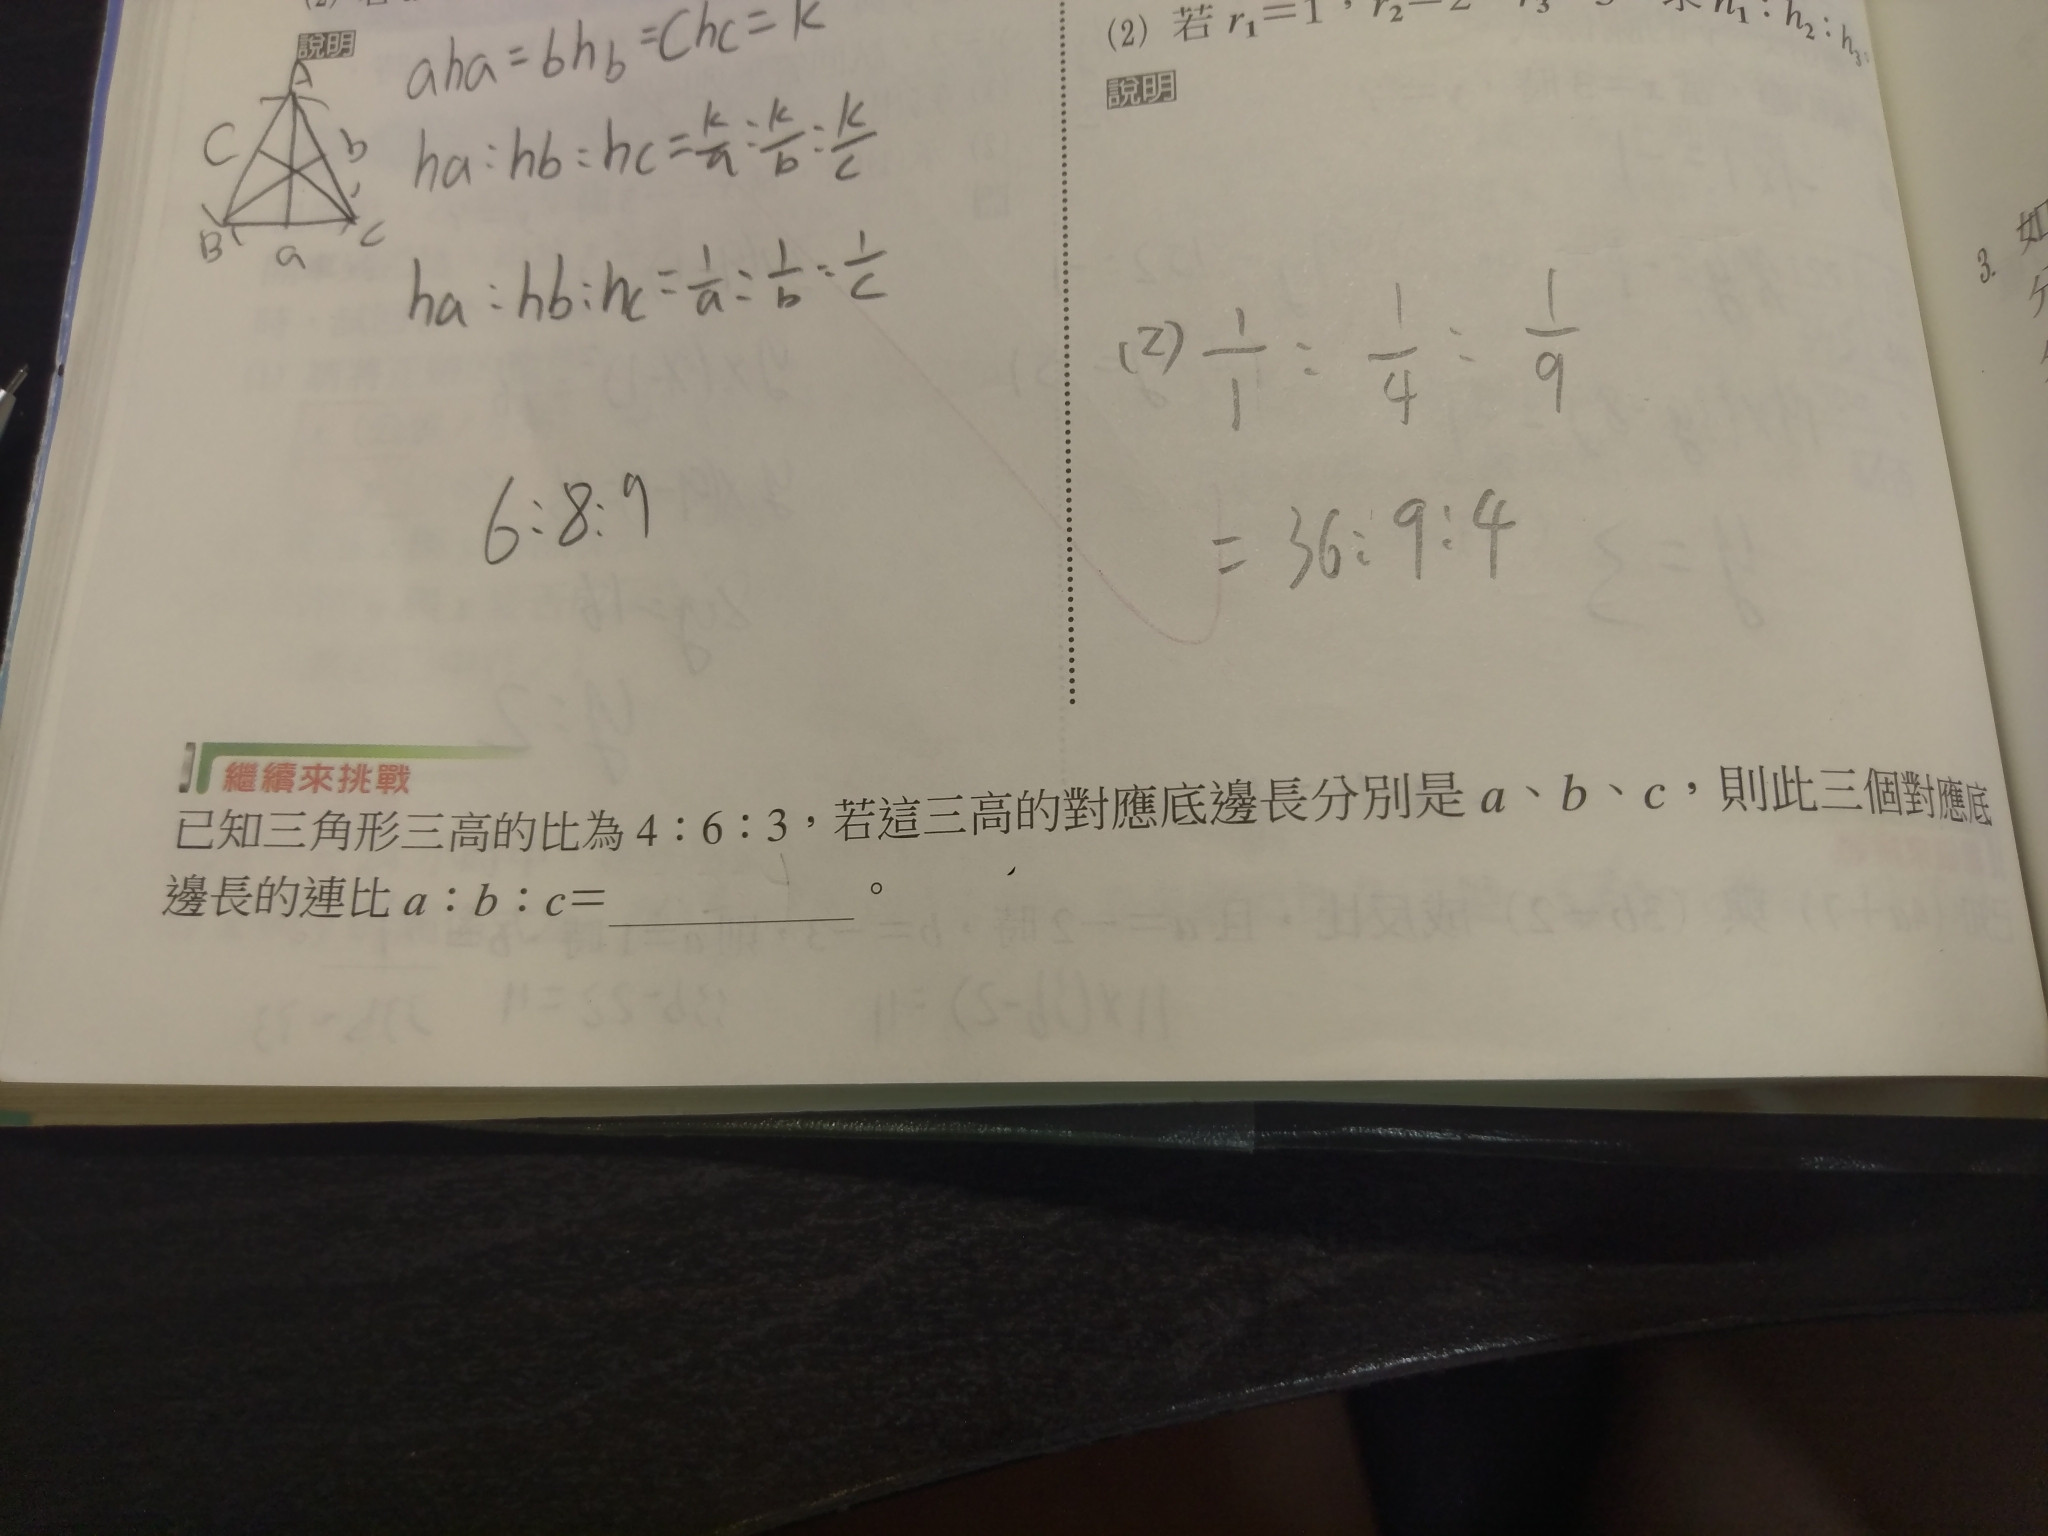 說明
aha=bhb=Chc=k
ha:hb:hc=k/a:k/b:k/c
ha:hb:hc=1/a:1/b:1/c
A
C b
B a C
6:8:9
(2) 若 r₁=1,r₂=2 h₁:h₂:h₃
說明
(2) 1/1 : 1/4 : 1/9
= 36:9:4
3. 如
繼續來挑戰
已知三角形三高的比為 4:6:3,若這三高的對應底邊長分別是 a、b、c,則此三個對應底
邊長的連比 a:b:c=________。